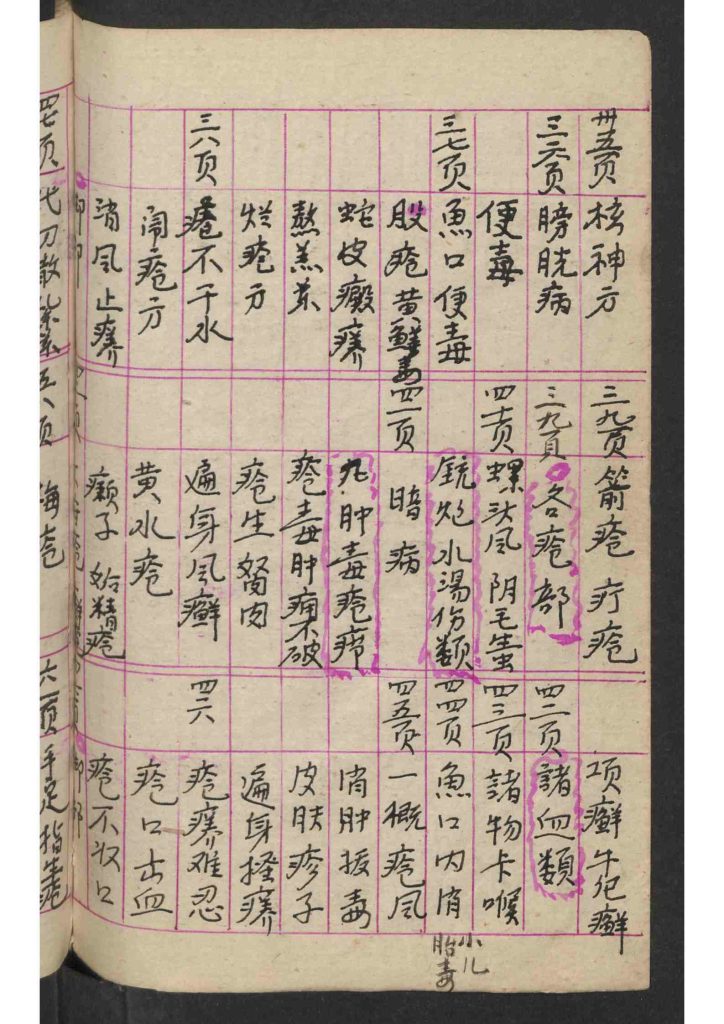 卅五页 核神方
三六页 膀胱病
便毒
三七页 魚口便毒
股疮黄鮮毒
蛇皮癜痒
熬羔茶
烂疮方
三八页 疮不干水
闹疮方
消风止痒
三九页 箭疮 疔疮
三九頁 各疮部
四十页 螺头风 阴毛虽
銃炮水湯伤類
四一页 暗病
九 肿毒疮疖
疮毒肿痛不破
疮生努肉
遍身风癣
黄水疮
癞子 妬精疮
项癣牛包癣
四二页 諸血類
四三页 諸物卡喉
四四页 魚口内消
小儿胎毒
四五页 一概疮风
消肿拔毒
皮肤疹子
遍身搔痒
四六 疮痒难忍
疮口出血
疮不收口
四七页 七刀散
五八页
六一页 手足指生疮